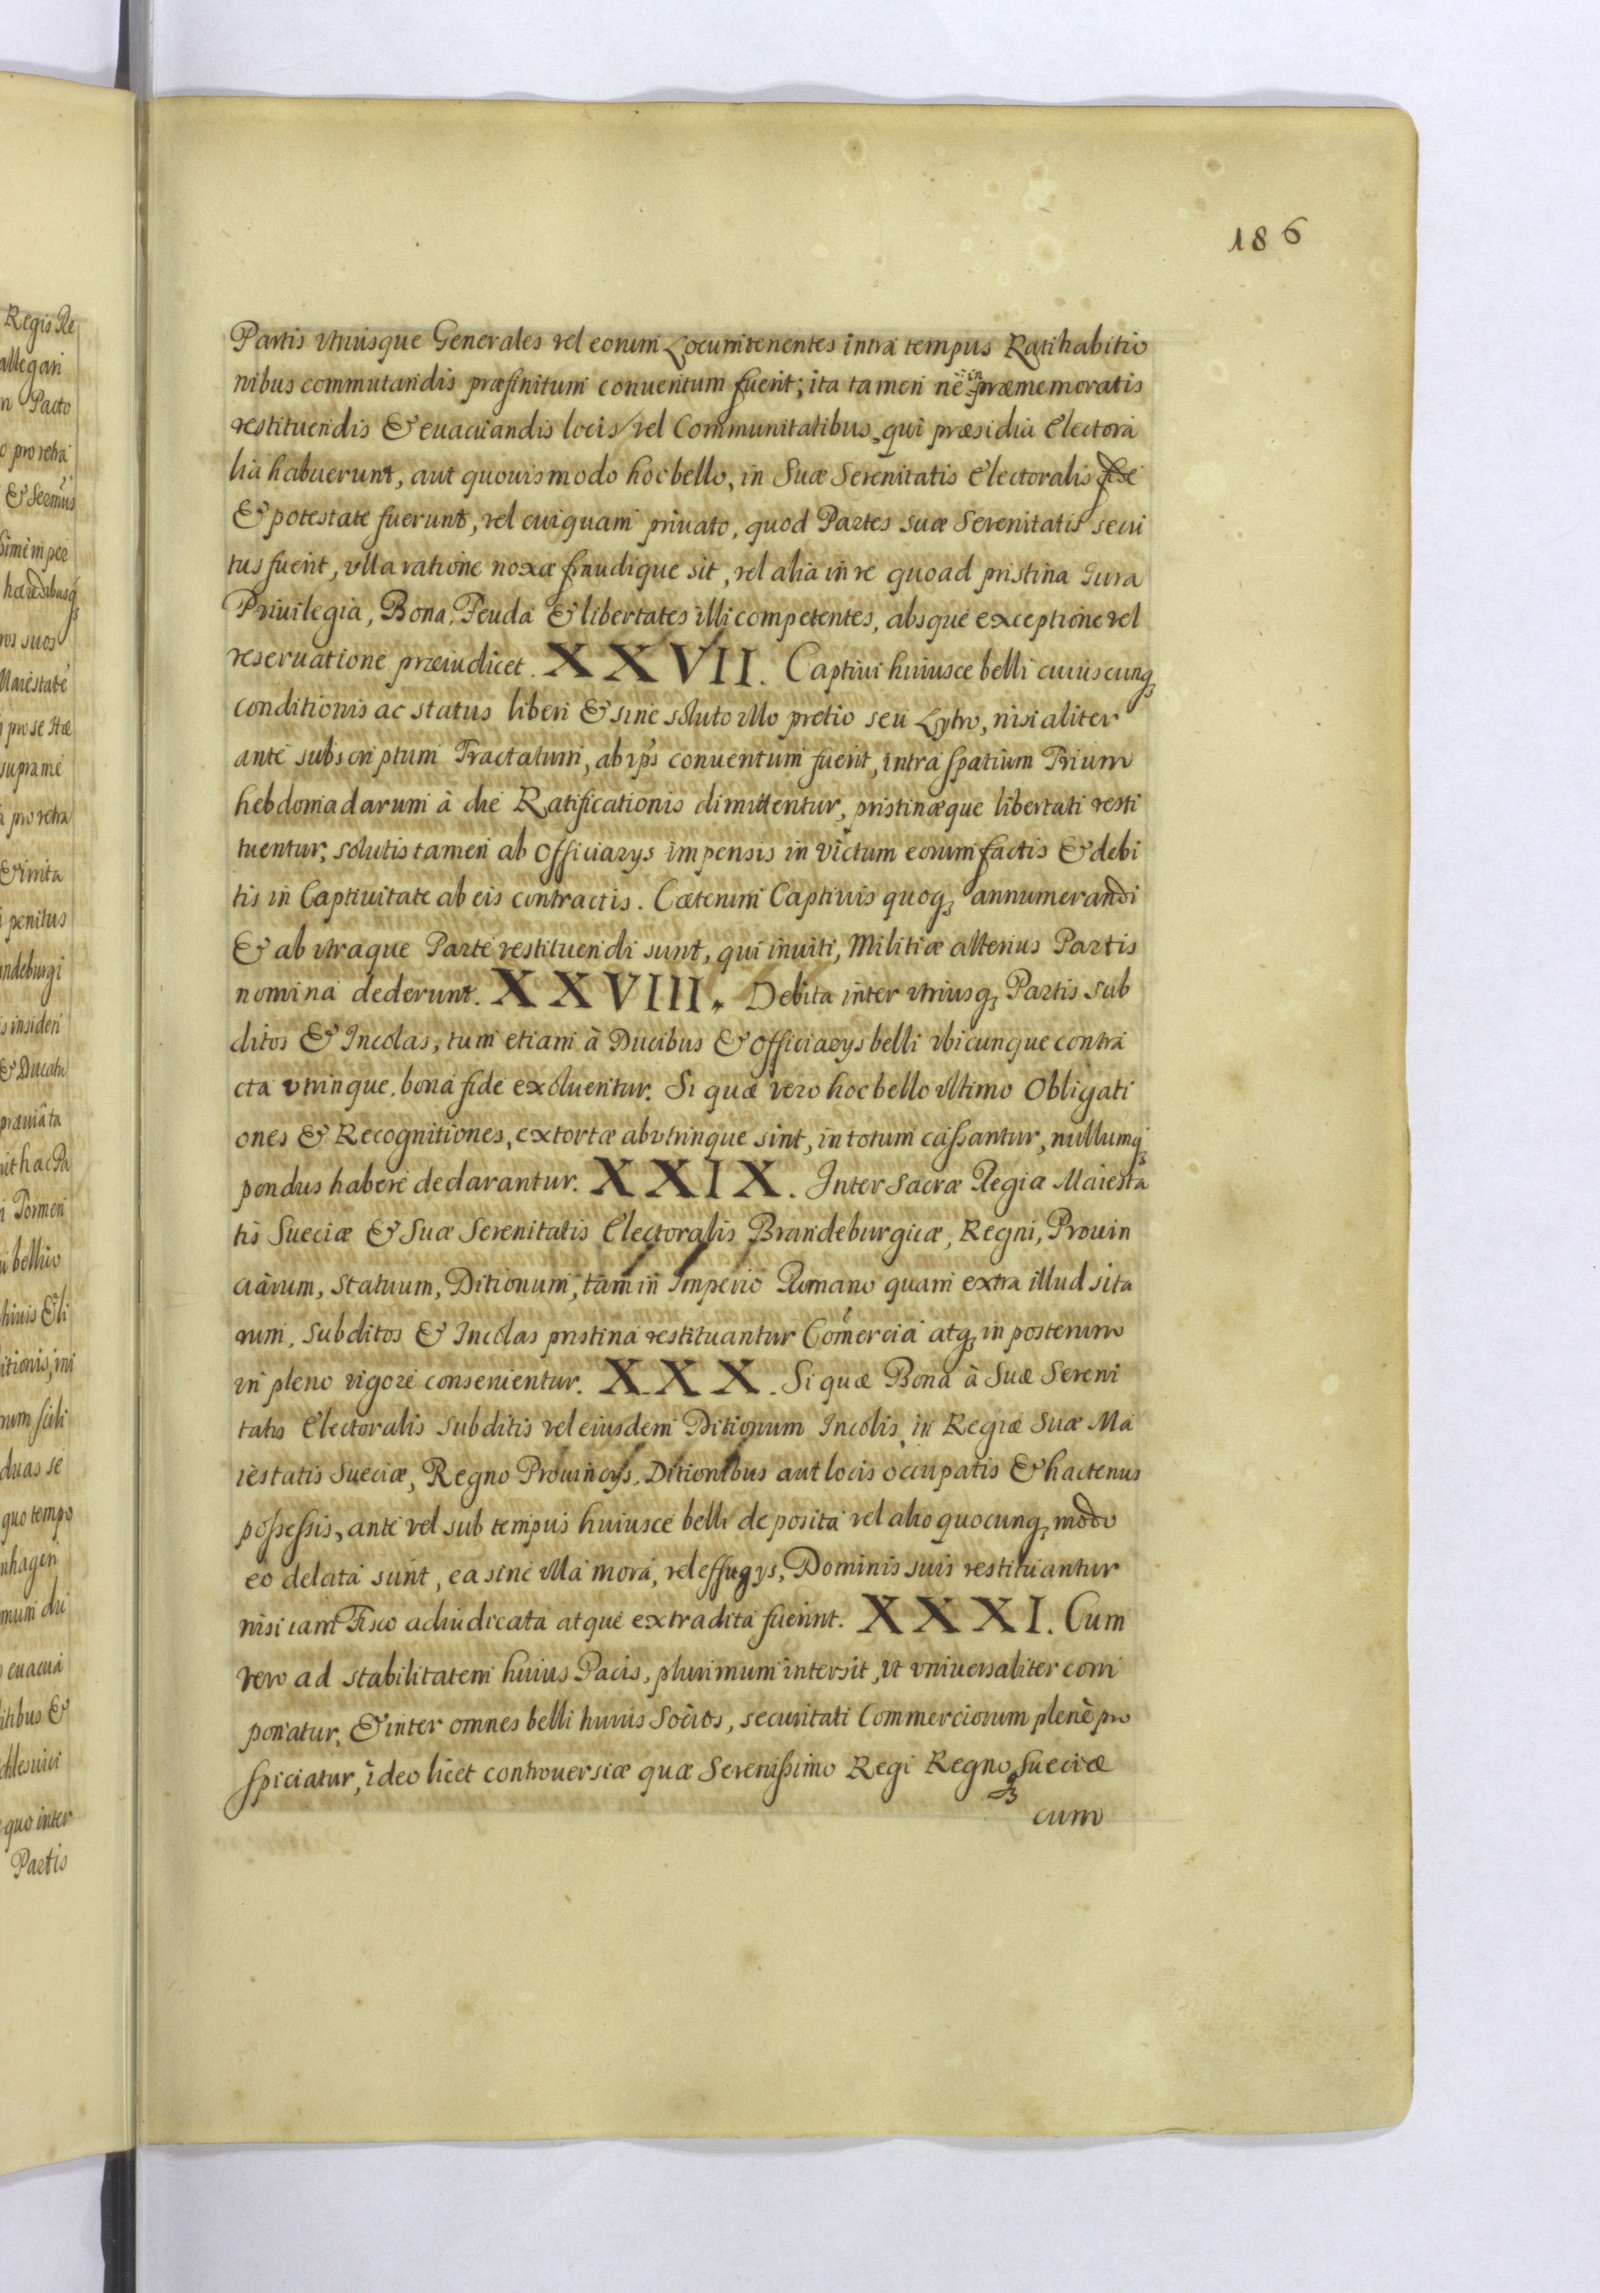 186
Partis vtriusque Generales vel eorum Locumtenentes intra tempus Ratihabitio
nibus commutandis præfinitum conuentum fuerit; ita tamen ne in præmemoratis
restituendis & euacuandis locis vel Communitatibus, qui præsidia Electora
lia habuerunt, aut quouis modo hoc bello, in Suæ Serenitatis Electoralis fide
& potestate fuerunt, vel cuiquam priuato, quod Partes suæ Serenitatis secu
tus fuerit, vlla ratione noxæ fraudique sit, vel alia in re quoad pristina Iura
Priuilegia, Bona, Feuda & libertates illi competentes, absque exceptione vel
reseruatione præiudicet. XXVII. Captiui huiusce belli cuiuscunq
conditionis ac status liberi & sine soluto vllo pretio seu Lytro, nisi aliter
ante subscriptum Tractatum, ab ips conuentum fuerit, intra spatium Trium
hebdomadarum à die Ratificationis dimittentur, pristinæque libertati resti
tuentur, solutis tamen ab Officiarys impensis in victum eorum factis & debi
tis in Captiuitate ab eis contractis. Cæterum Captiuis quoq annumerandi
& ab vtraque Parte restituendi sunt, qui inuiti, Militiæ alterius Partis
nomina dederunt. XXVIII. Debita inter vtriusq Partis sub
ditos & Incolas, tum etiam à Ducibus & Officiarys belli vbicunque contra
cta vtrinque, bona fide exoluentur. Si quæ vero hoc bello vltimo Obligati
ones & Recognitiones, extortæ ab vtrinque sint, in totum cassantur, nullumq
pondus habere declarantur. XXIX. Inter Sacræ Regiæ Maiesta
tis Sueciæ & Suæ Serenitatis Electoralis Brandeburgicæ, Regni, Prouin
ciarum, Statuum, Ditionum, tam in Imperio Romano quam extra illud sita
rum, Subditos & Incolas pristina restituantur Comercia atq in posterum
in pleno vigore conseruentur. XXX. Si quæ Bona à Suæ Sereni
tatis Electoralis subditis vel eiusdem Ditionum Incolis, in Regiæ Suæ Ma
iestatis Sueciæ, Regno Prouincys, Ditionibus aut locis occupatis & hactenus
possessis, ante vel sub tempus huiusce belli deposita vel alio quocunq modo
eo delata sunt, ea sine vlla mora, vel effugys, Dominis suis restituantur
nisi iam Fisco adiudicata atque extradita fuerint. XXXI. Cum
vero ad stabilitatem huius Pacis, plurimum intersit, vt vniuersaliter com
ponatur, & inter omnes belli huius Socios, securitati Commerciorum plenè pro
spiciatur, ideo licet controuersiæ quæ Serenissimo Regi Regnoq Sueciæ
cum
Regis Re
allegari
Pacto
pro retra
suos
Maiestate
pro se
supra me
pro retra
& irrita
penitus
insideri
& Ducatu
præuia ta
hac Pa
bellico
duas se
quo tempo
euacua
quo inter
Partis